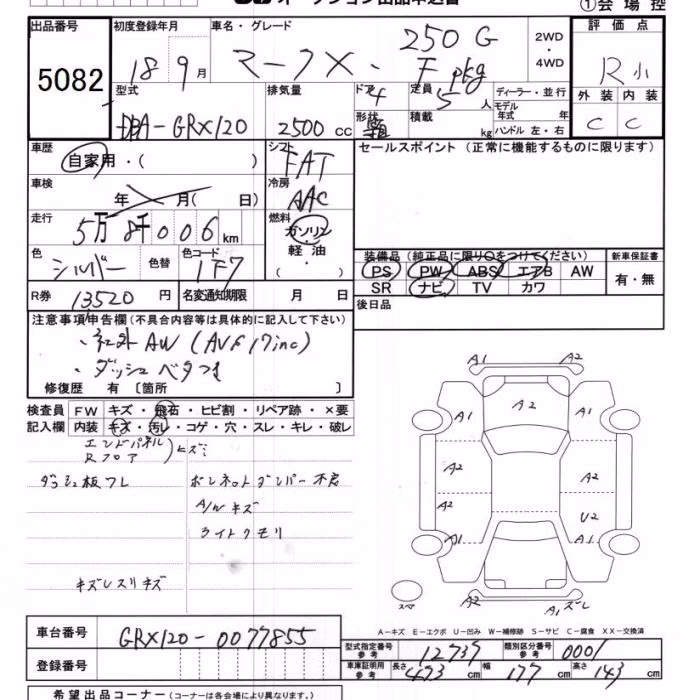 オークション出品申込書
①会場控
出品番号
5082
初度登録年月
18 9月
車名・グレード
マークX・250G
F pkg
2WD
・
4WD
評価点
R小
外装 内装
C C
型式
DBA-GRX120
排気量
2500cc
ドア
4
形状
定員
5人
積載
kg
ディーラー・並行
モデル
年式 年
ハンドル 左・右
車歴
自家用・( )
シフト
FAT
セールスポイント(正常に機能するものに限ります)
車検
年 月( 日)
冷房
AAC
走行
5万8千006km
燃料
ガソリン
軽油
( )
色
シルバー
色替
色コード
1F7
装備品(純正品に限り○をつけてください)
PS PW ABS エアB AW
SR ナビ TV カワ
新車保証書
有・無
R券
13520円
名変通知期限 月 日
後日品
注意事項申告欄(不具合内容等は具体的に記入して下さい)
・社外AW(AVS17inc)
・ダッシュベタつき
修復歴 有〔箇所 〕
検査員 FW キズ・飛石・ヒビ割・リペア跡・×要
記入欄 内装 キズ・汚レ・コゲ・穴・スレ・キレ・破レ
エンドパネル
Rフロア
ヒズミ
ダッシュ板フレ
ボンネットダンパー不良
A/Wキズ
ライトクモリ
キズレスリキズ
A1 A2
A1 A2 A1
A2 A2
A2 U2
A1 A1
スペア
A2 A1ズレ
A-キズ E-エクボ U-凹み W-補修跡 S-サビ C-腐食 XX-交換済
車台番号
GRX120-0077855
登録番号
型式指定番号
参考
12737
類別区分番号
参考
0001
車庫証明用
参考
長さ 473cm 幅 177cm 高さ 143cm
希望出品コーナー(コーナーは各会場により異なります。)